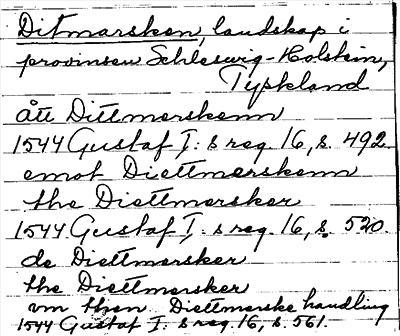 Ditmarsken, landskap i
provinsen Schleswig-Holstein,
Tyskland
ått Dittmerskenn
1544 Gustaf I:s reg. 16, s. 492.
emot Diettmerskenn
the Diettmersker
1544 Gustaf I:s reg. 16, s. 520.
de Diettmersker
the Diettmersker
vm then Diettmerske handling
1544 Gustaf I:s reg. 16, s. 561.